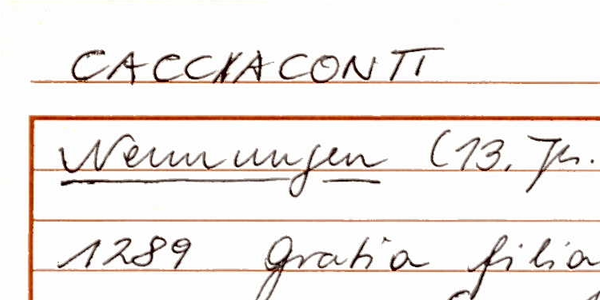 CACCIACONTI
Nennungen (13. Jh.
1289 Gratia filia